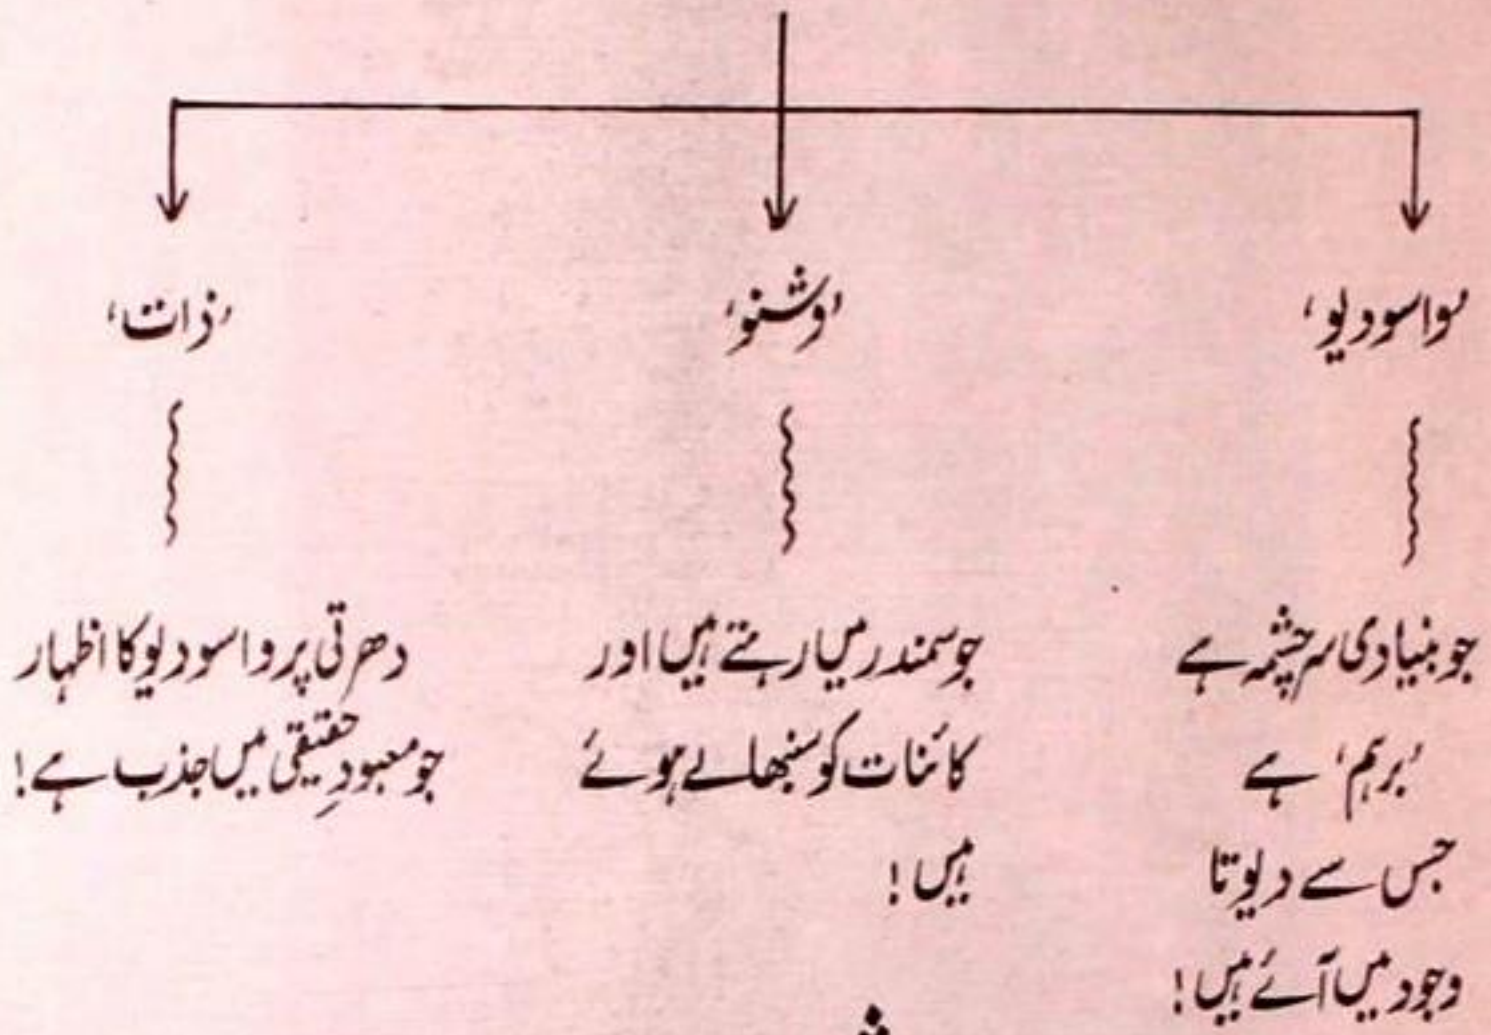 'واسودیو'
جو بنیادی سرچشمہ ہے
'برہم' ہے
جس سے دیوتا
وجود میں آئے ہیں!
'وشنو'
جو سمندر میں رہتے ہیں اور
کائنات کو سنبھالے ہوئے
ہیں!
'ذات'
دھرتی پر واسودیو کا اظہار
جو معبودِ حقیقی میں جذب ہے!